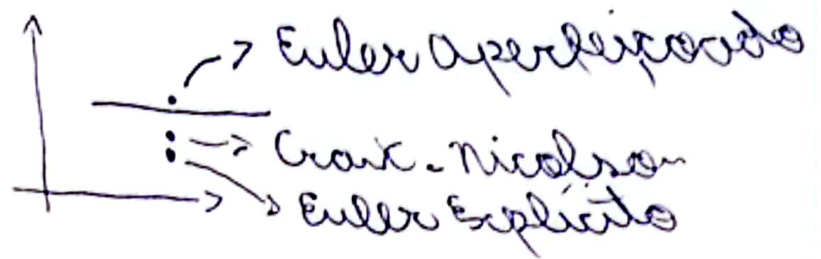 Euler Aperfeiçoado
Craik-Nicolson
Euler Explícito